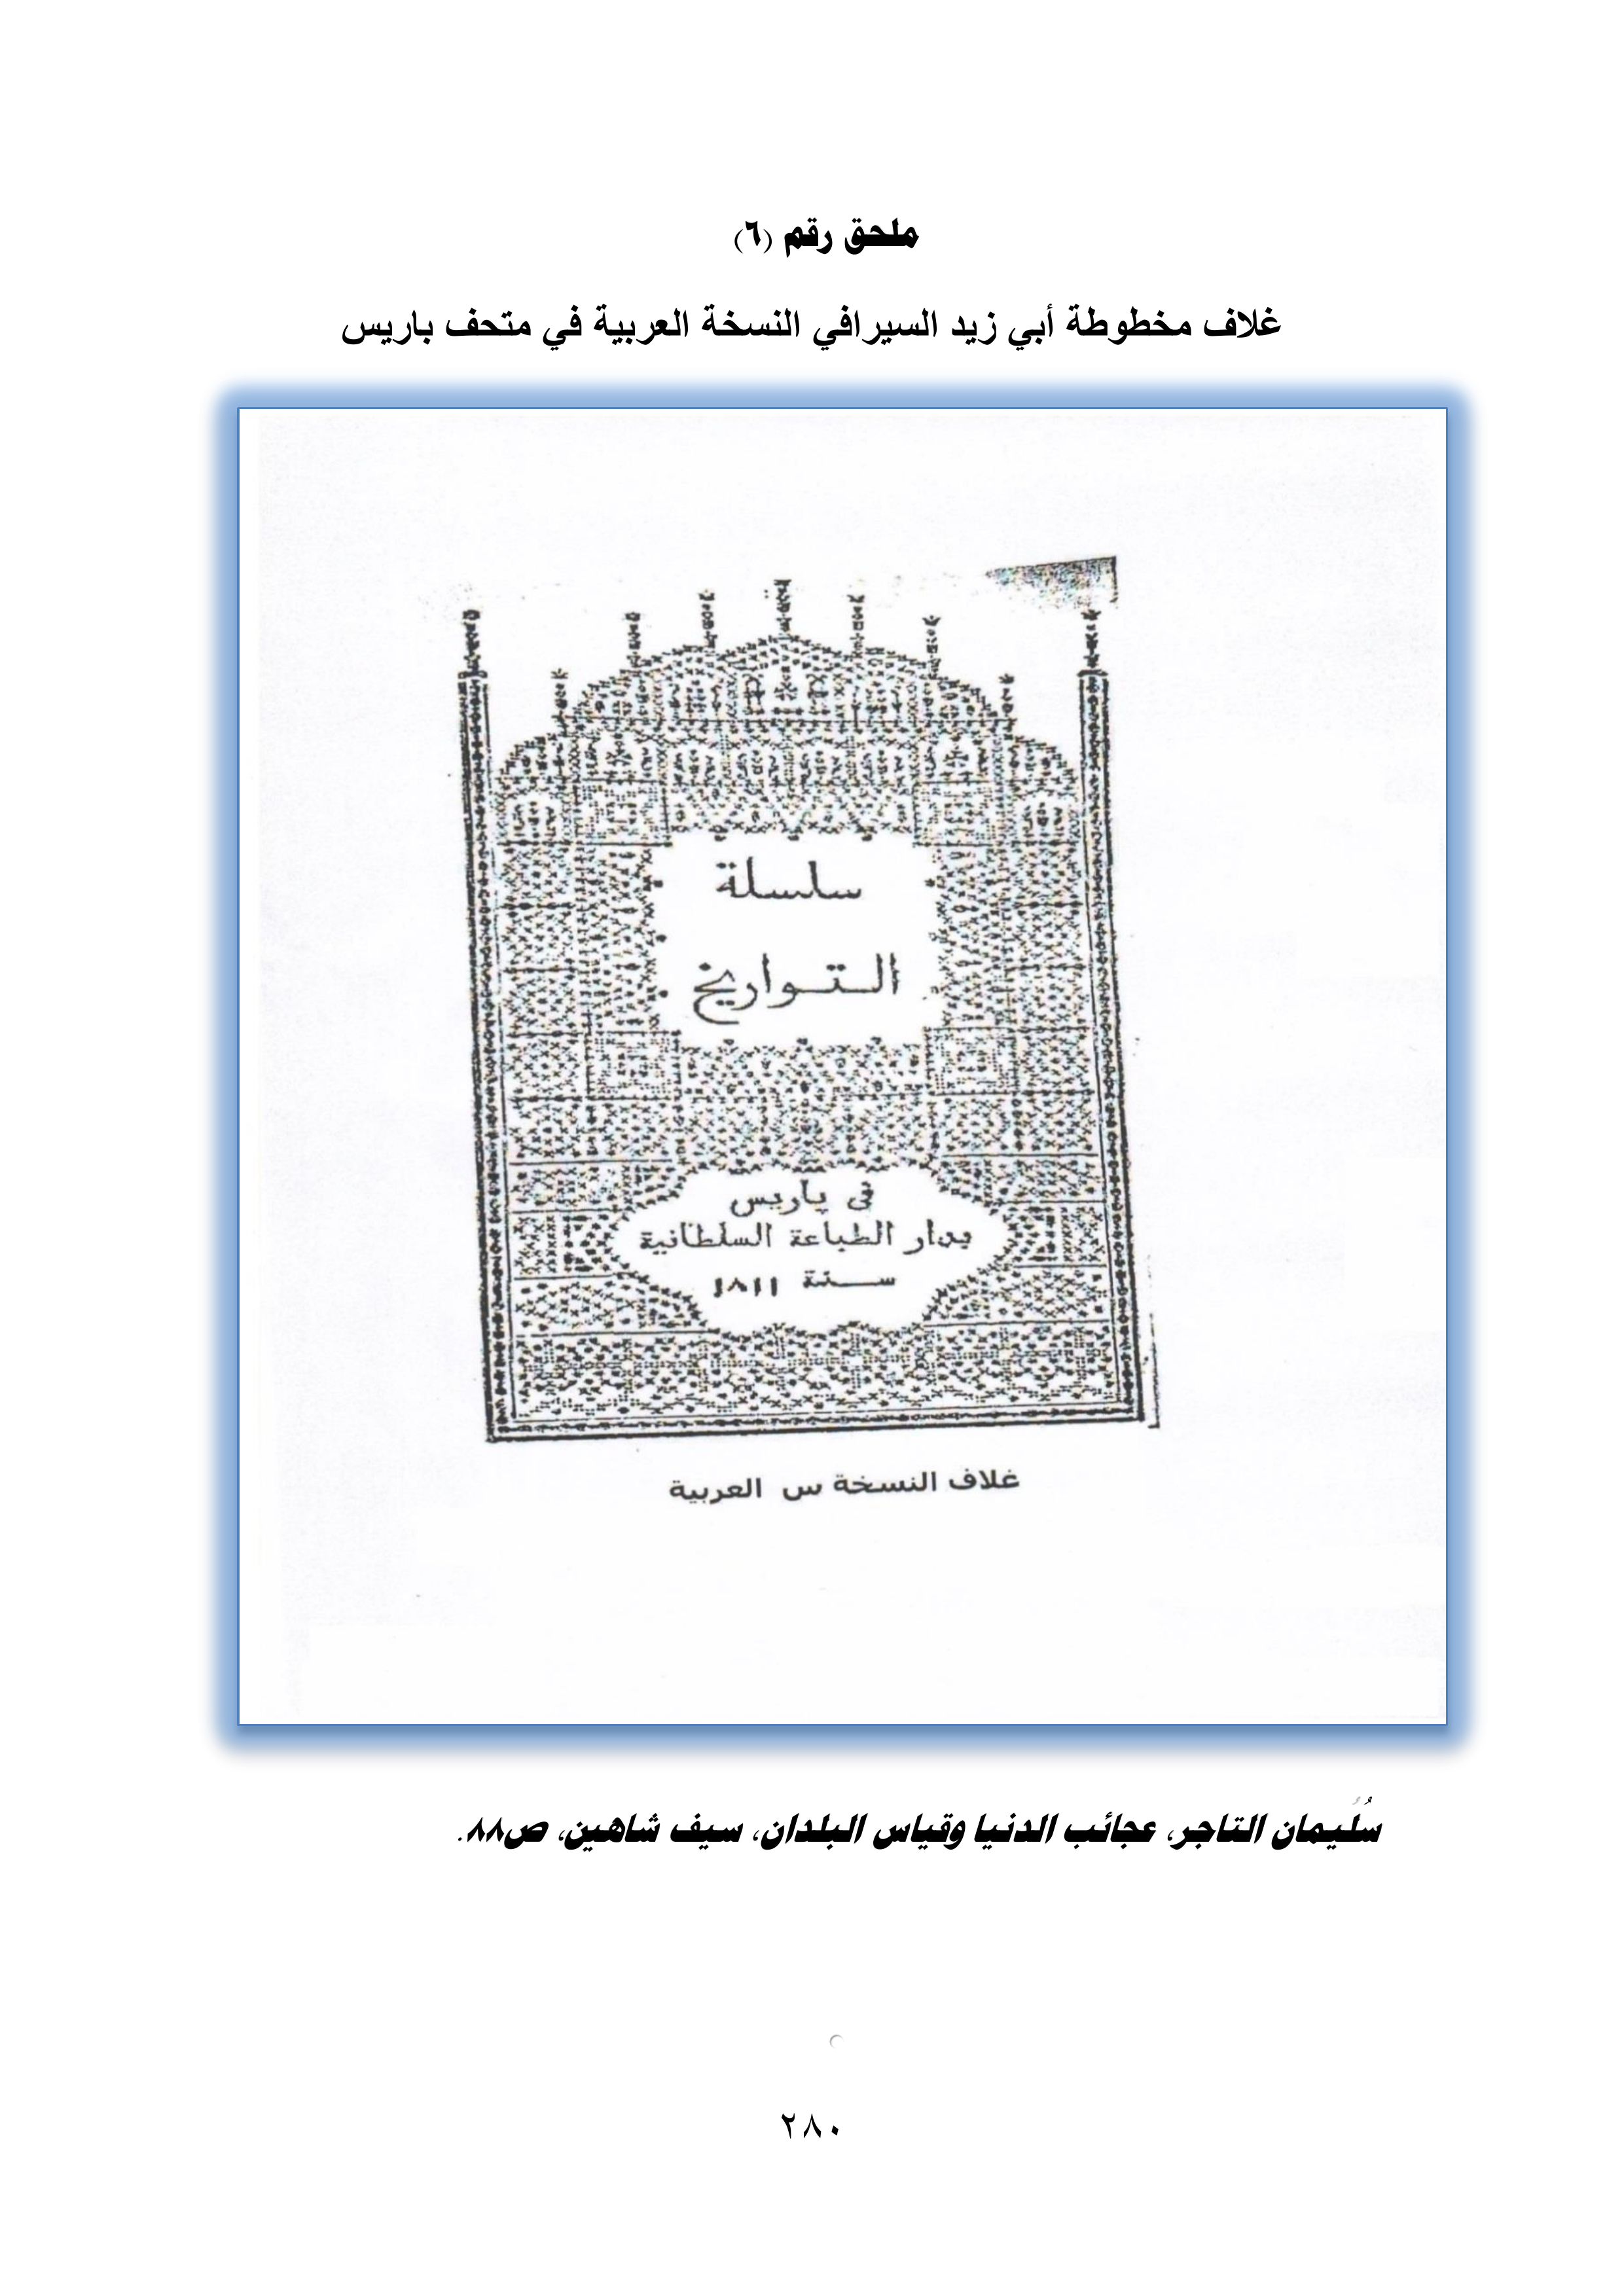 ملحق رقم (٦)
غلاف مخطوطة أبي زيد السيرافي النسخة العربية في متحف باريس
سلسلة
التواريخ
في پاريس
بدار الطباعة السلطانية
سنة ١٨١١
غلاف النسخة س العربية
سُليمان التاجر، عجائب الدنيا وقياس البلدان، سيف شاهين، ص٨٨.
٢٨٠